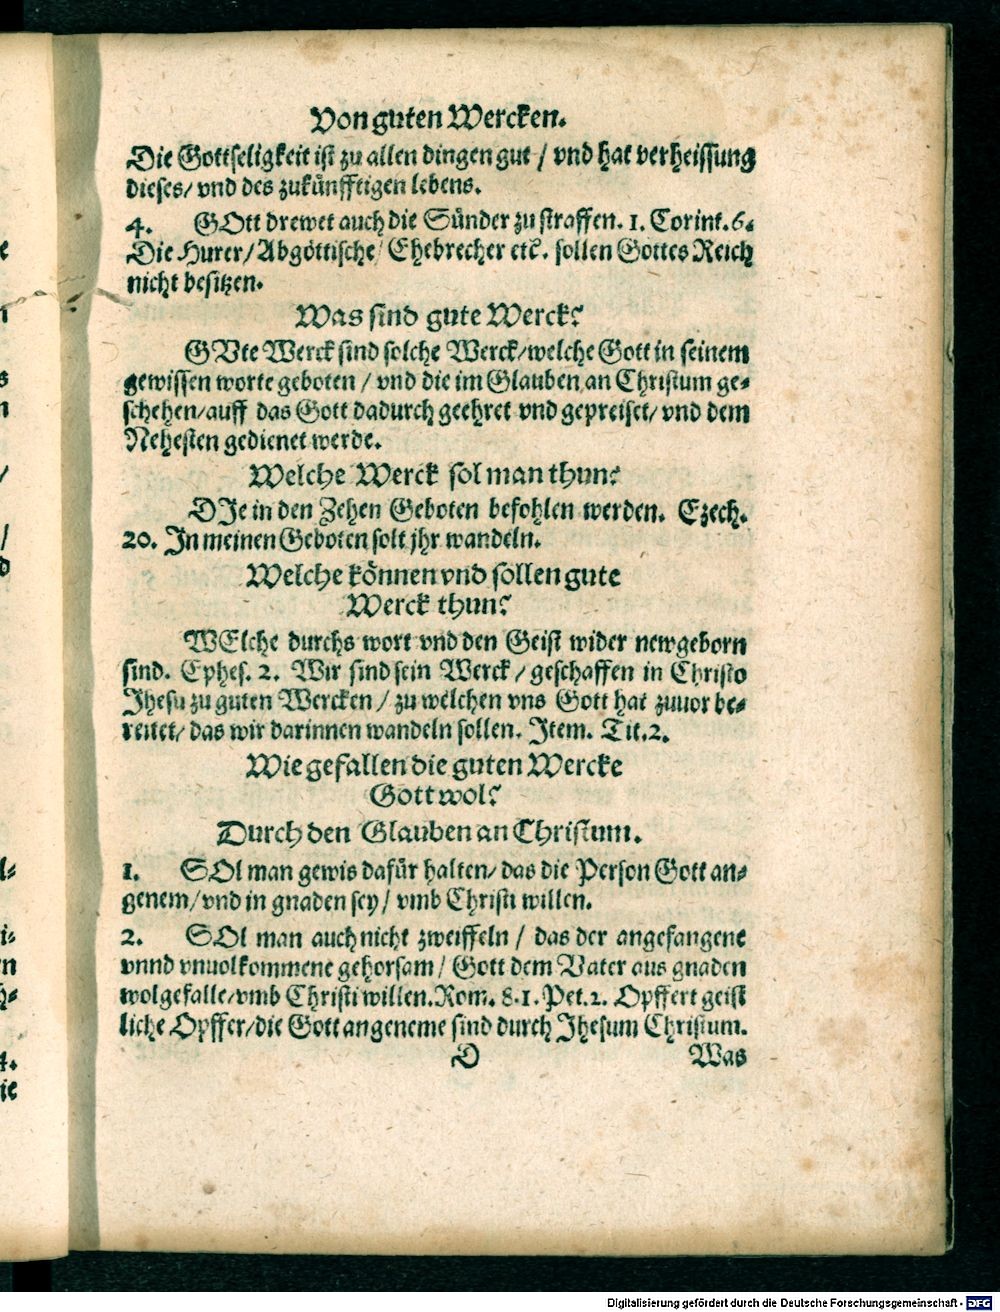 Von guten Wercken.
Die Gottseligkeit ist zu allen dingen gut / vnd hat verheissung
dieses/ vnd des zukünfftigen lebens.
4. GOtt drewet auch die Sünder zu straffen. 1. Corint. 6.
Die Hurer/ Abgöttische/ Ehebrecher etc. sollen Gottes Reich
nicht besitzen.
Was sind gute Werck?
GVte Werck sind solche Werck/ welche Gott in seinem
gewissen worte geboten / vnd die im Glauben an Christum ge-
schehen/ auff das Gott dadurch geehret vnd gepreiset/ vnd dem
Nehesten gedienet werde.
Welche Werck sol man thun?
DJe in den Zehen Geboten befohlen werden. Ezech.
20. Jn meinen Geboten solt jhr wandeln.
Welche können vnd sollen gute
Werck thun?
WElche durchs wort vnd den Geist wider newgeborn
sind. Ephes. 2. Wir sind sein Werck / geschaffen in Christo
Jhesu zu guten Wercken / zu welchen vns Gott hat zuuor be-
reitet/ das wir darinnen wandeln sollen. Jtem. Tit. 2.
Wie gefallen die guten Wercke
Gott wol?
Durch den Glauben an Christum.
1. SOl man gewis dafür halten/ das die Person Gott an-
genem/ vnd in gnaden sey / vmb Christi willen.
2. SOl man auch nicht zweiffeln / das der angefangene
vnnd vnuolkommene gehorsam / Gott dem Vater aus gnaden
wolgefalle/ vmb Christi willen. Rom. 8. 1. Pet. 2. Opffert geist
liche Opffer/ die Gott angeneme sind durch Jhesum Christum.
D Was
Digitalisierung gefördert durch die Deutsche Forschungsgemeinschaft - DFG